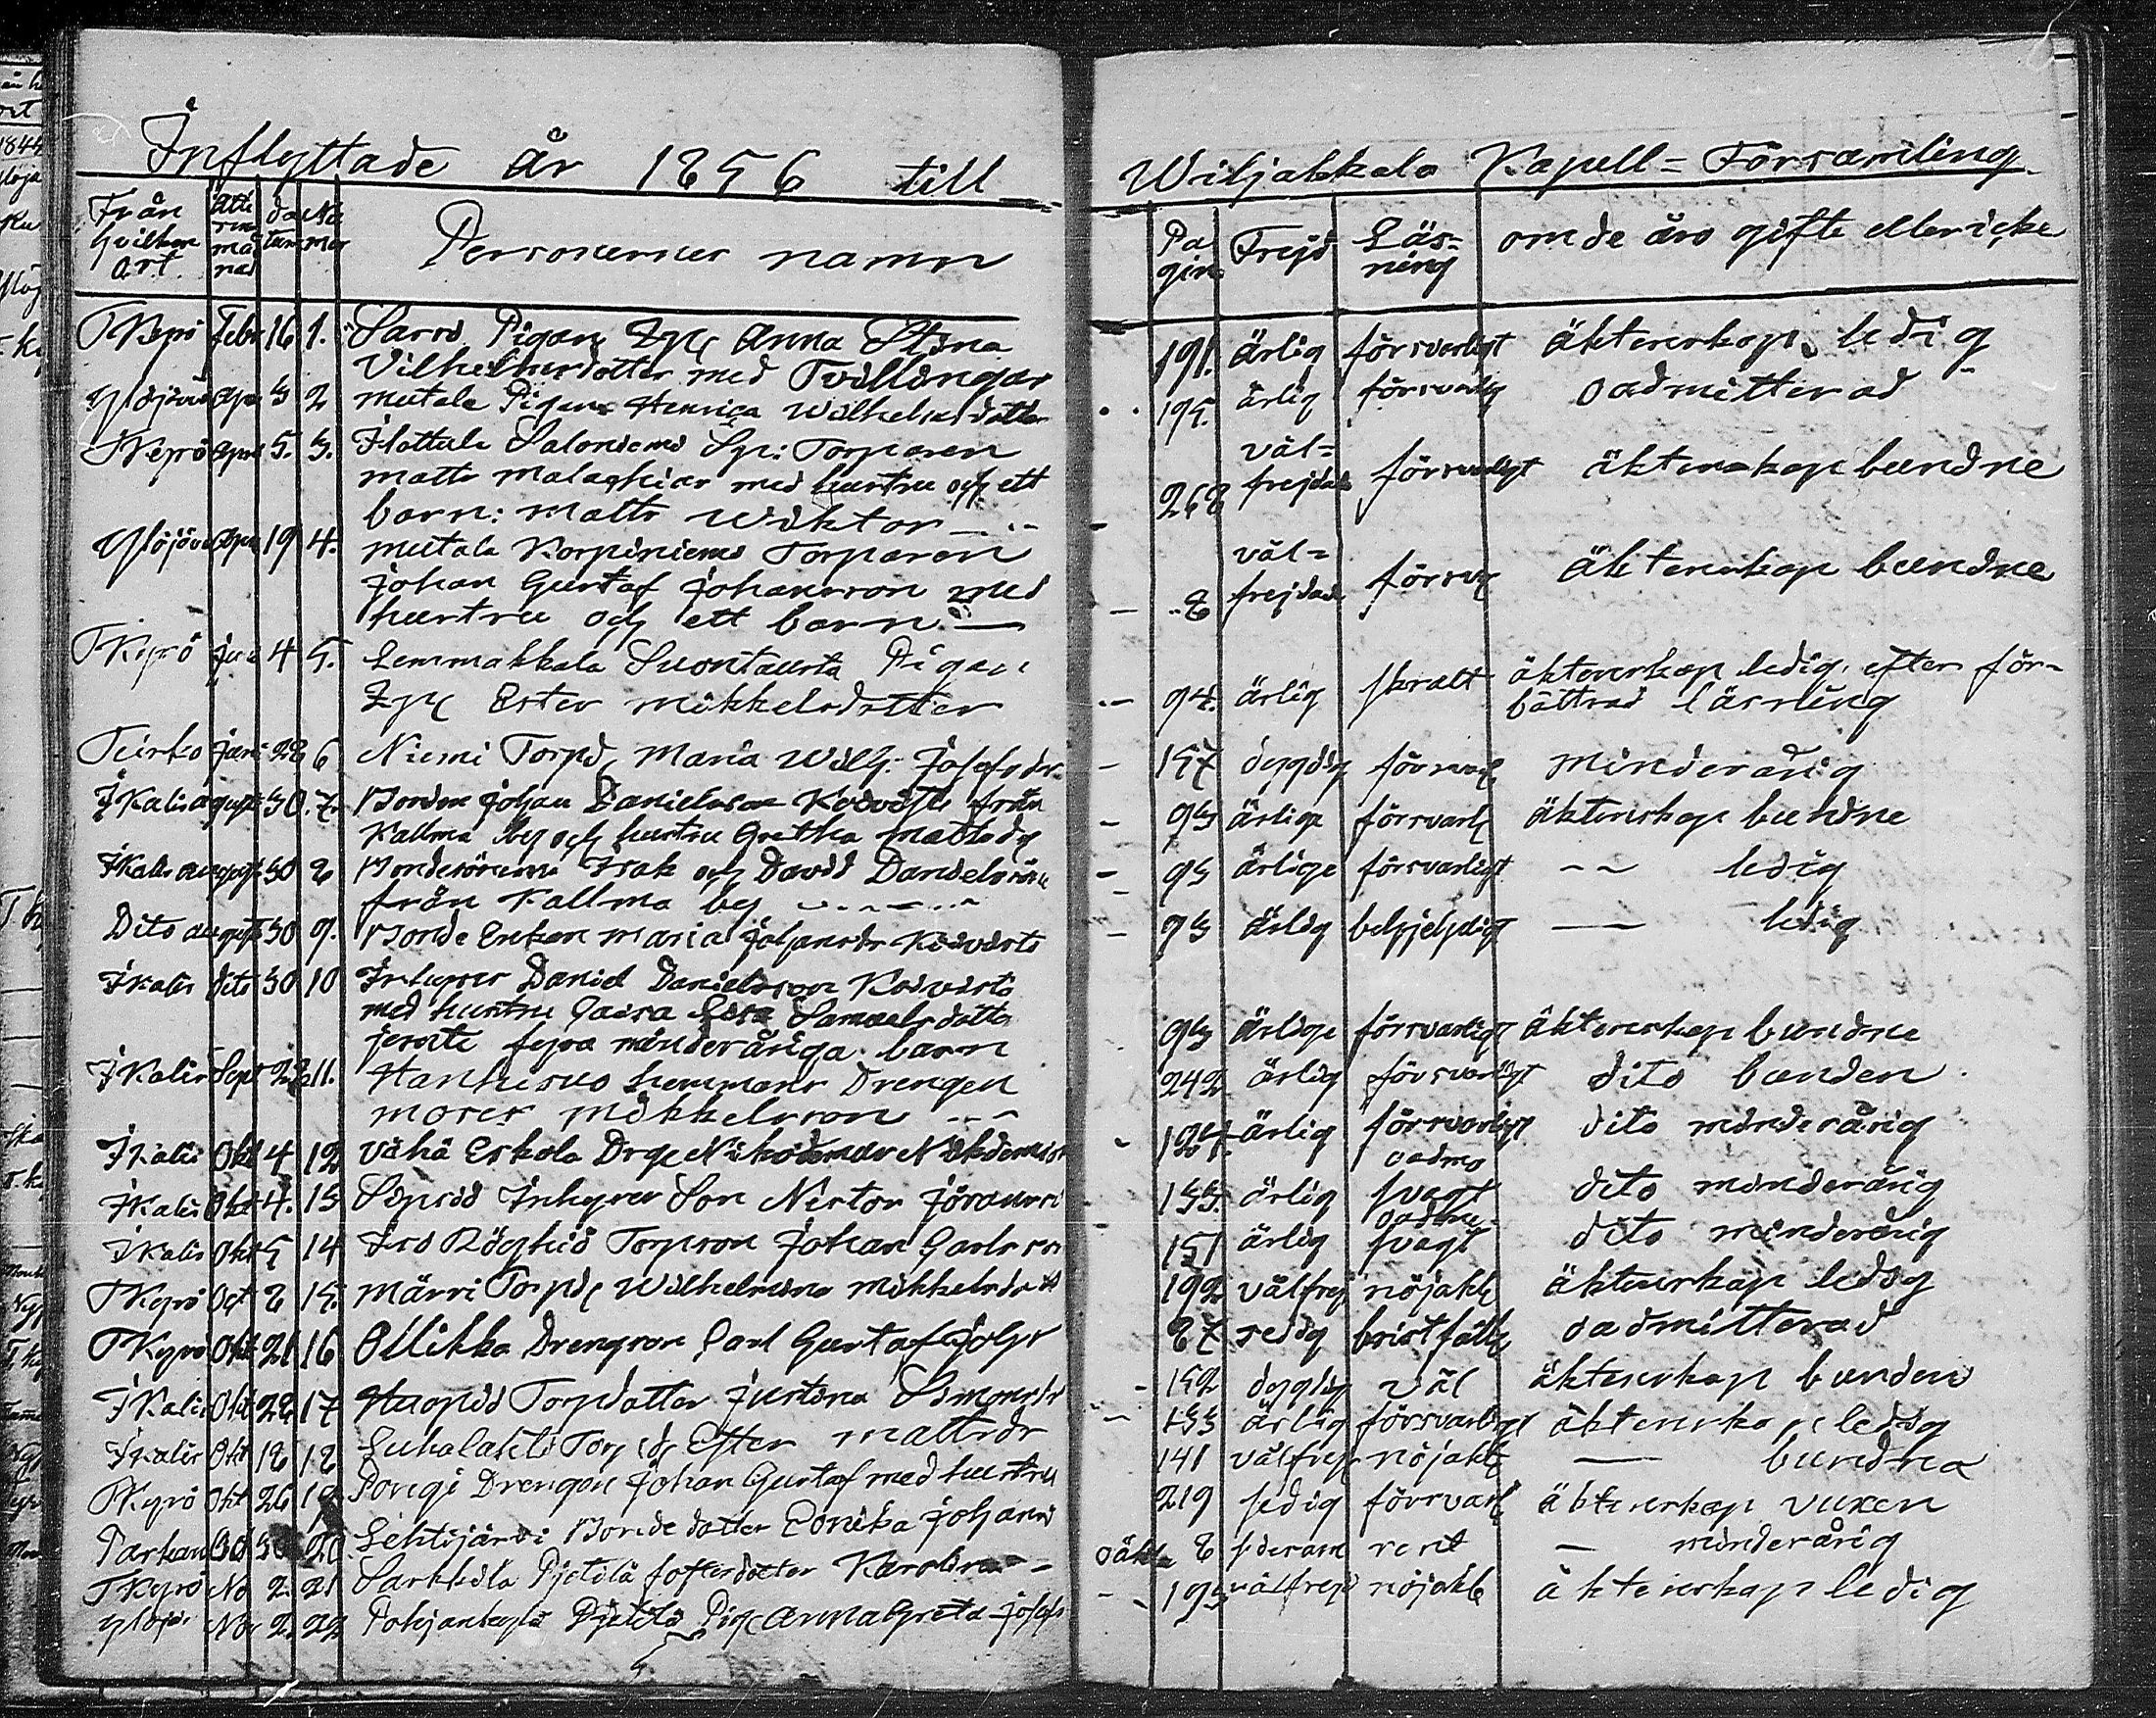 Inflyttade år 1856 till Wiljakkala Kapell = Församling
Från hvilken ort
Atte sin må nad
da tum
Nu mer
Personernes namn
Pa gin
Frejd
Läs= ning
om de äro gifte eller icke
TKyrö Febr 16 1. Sarvi Pigan Anna Stina
Vilhelmsdotter med Tvillingar 191. ärlig försvarligt äktenskaps ledig
Ylöjärvi Apr 3 2 mutala Pigan Henrica Wilhelmsdotter 195. ärlig försvarlig oadmitterad
TKyrö Apr 5. 3. Saloniemi Torparen
matts malachias med hustru och ett
barn: matts Wiktor 268 väl= frejdade försvarligt äktenskap bundne
Ylöjärvi Apr 19 4. mutala Korpiniemi Torparen
Johan Gustaf Johansson med
hustru och ett barn. 8 väl= frejdade försvarl äktenskap bundne
TKyrö Juni 4 5. Lemmakkala Suontausta Pigan
Ester mikkelsdotter 94. ärlig skralt äktenskap ledig, efter för=
bättrad läsning
Teisko Juni 28 6 Niemi Torpd, Maria Wilh: Josefsdr 157 dygdig försvarl minderårig
Ikalis august 30. 7. Bonden Johan Danielsson Koivisto från
Kallma by och hustru Gretha mattsdr 93 ärlige försvarl äktenskap bundne
Ikalis august 30 8 Bondesönerna Isak och David Danielssöner
från Kallma by 93 ärlige försvarligt -- ledig
Dito august 30 9. Bonde Enkan Maria Johansdr Koivisto 93 ärlig ledig
Ikalis dito 30 10 Inhyses Daniel Danielsson Koivisto
med hustru Caisa Lisa Samuelsdotter
jemte fyra minderåriga barn 93 ärlige försvarligt äktenskap bundne
Ikalis Sept 28 11. hemmans Drengen
moses mikkelsson 242 ärlig försvarligt dito bunden
Ikalis Okt 4 12 Vähä Eskola Drge Nikodemus 124. ärlig försvarligt oadmi dito minderårig
Ikalis Okt 4. 13 Inhyses Son Nestor 133. ärlig svagt oadmi dito minderårig
Ikalis Okt 5 14 Iso Röyhiö Torpson Johan Carlsson 151 ärlig svagt dito minderårig
TKyrö Oct 8 15. märri Torpd Wilhelmina mikkelsdott 192 välfrejd nöjakl äktenskap ledig
TKyrö Okt 21 16 Ollikka Drengson Carl Gustaf Johs 87 sedig bristfälli oadmitterad
Ikalis Okt 28 17 Torpdotter Justina Simonsdr 152 dygdig väl äktenskap bunden
Ikalis Okt 18 18 Torpd Ester mattsdr 133 ärlig försvarligt äktenskap ledig
TKyrö Okt 26 19. Pengi Drengen Johan Gustaf med hustru 141 välfrejd nöjakl bundna
Parkano Oct 30 20 Lehtijärvi Bondedotter Johans 219 sedig försvarl äktenskap vuxen
TKyrö No 2. 21 Sarkkila Pietilä fosterdotter Karolina oäkta 8 sedesam rent minderårig
Ylöjär Nov 2. 22 Pohjankylä Pietilä Pig Anna Greta Josefs 193 välfrejd nöjakl äktenskaps ledig